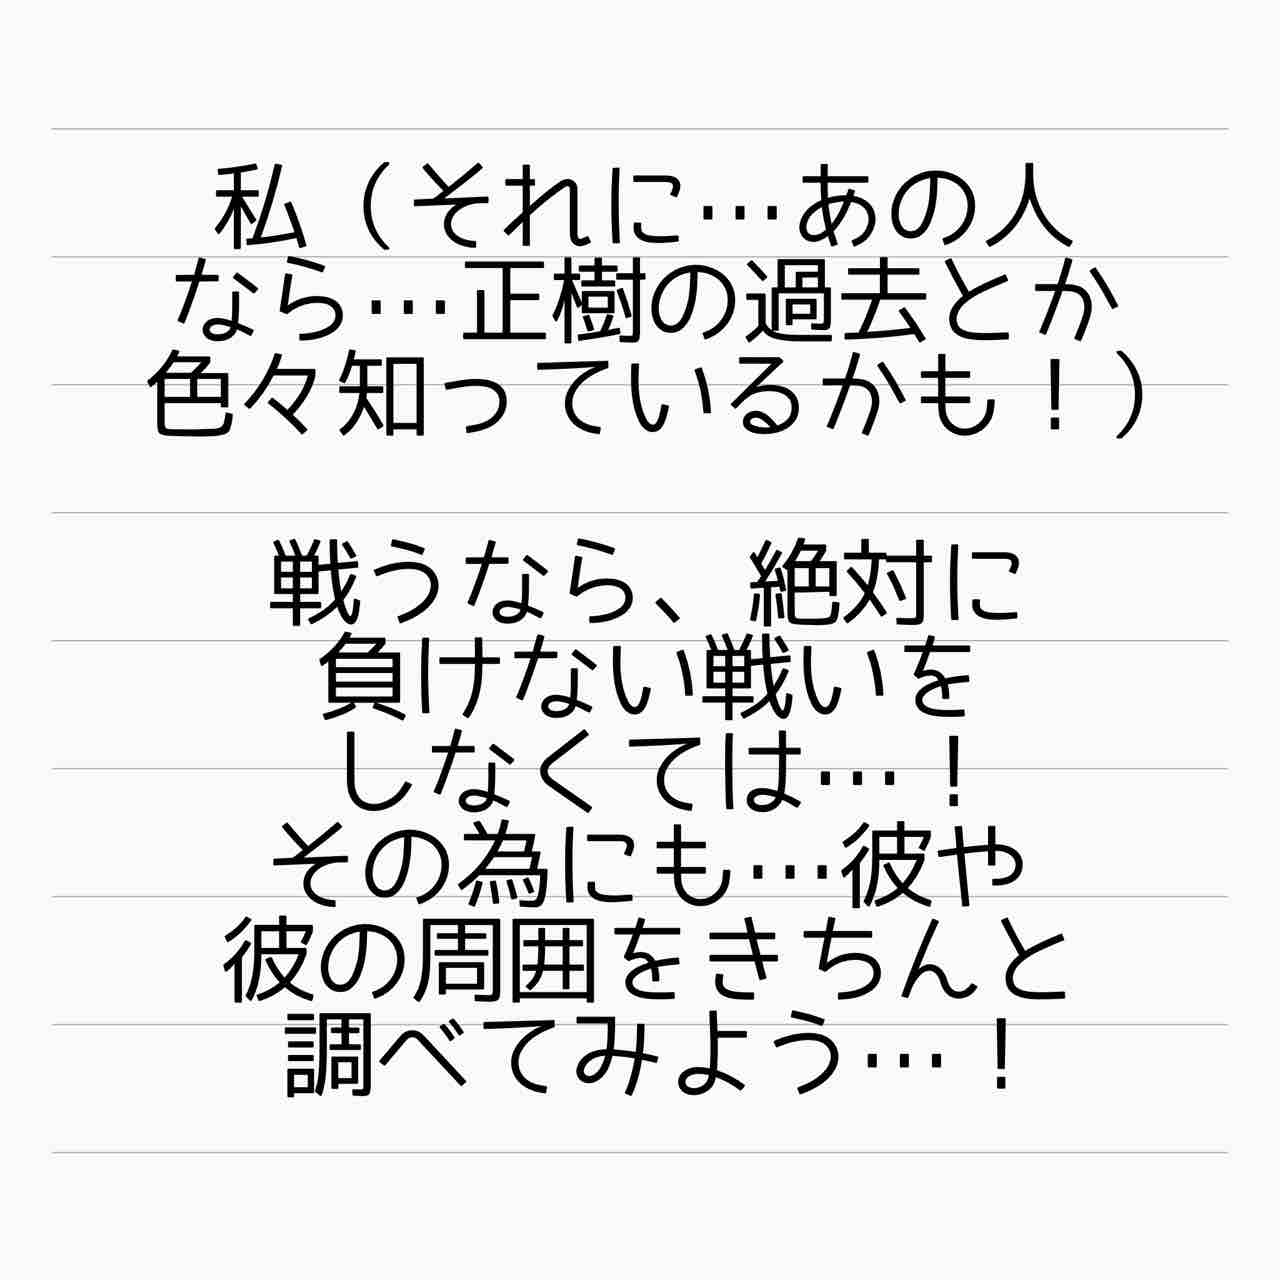 私（それに…あの人
なら…正樹の過去とか
色々知っているかも！）
戦うなら、絶対に
負けない戦いを
しなくては…！
その為にも…彼や
彼の周囲をきちんと
調べてみよう…！